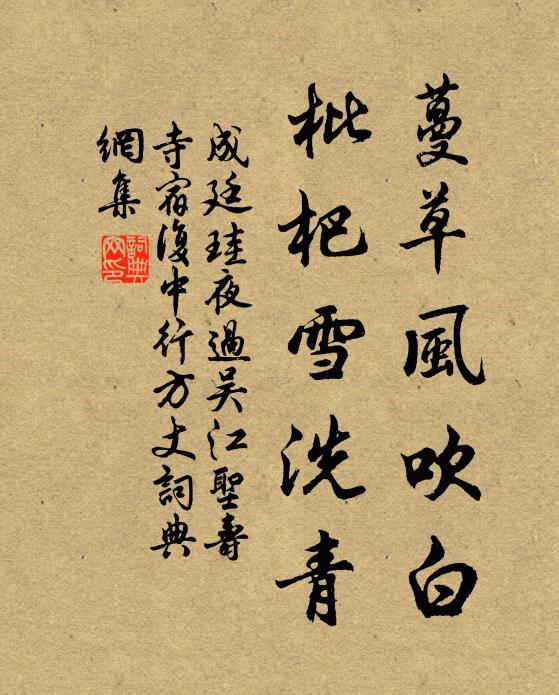 蔓草風吹白
枇杷雪洗青
成廷珪夜過吴江聖壽
寺宿復中行方丈詞典
網集
詞典網印